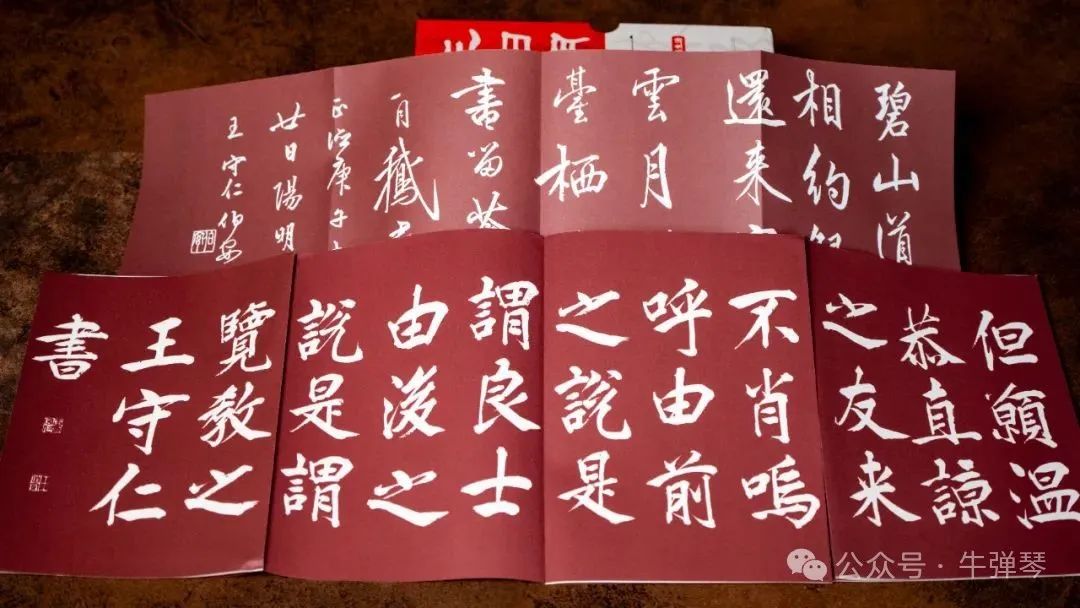 碧山道
相約
還来
雲月
臺栖
書留
月鵝
正德庚午
廿日陽明
王守仁伯安
但願温
恭直諒
之友来
不肖嗚
呼由前
之説是
謂良士
由後之
説是謂
覽教之
王守仁
書
公众号·牛弹琴